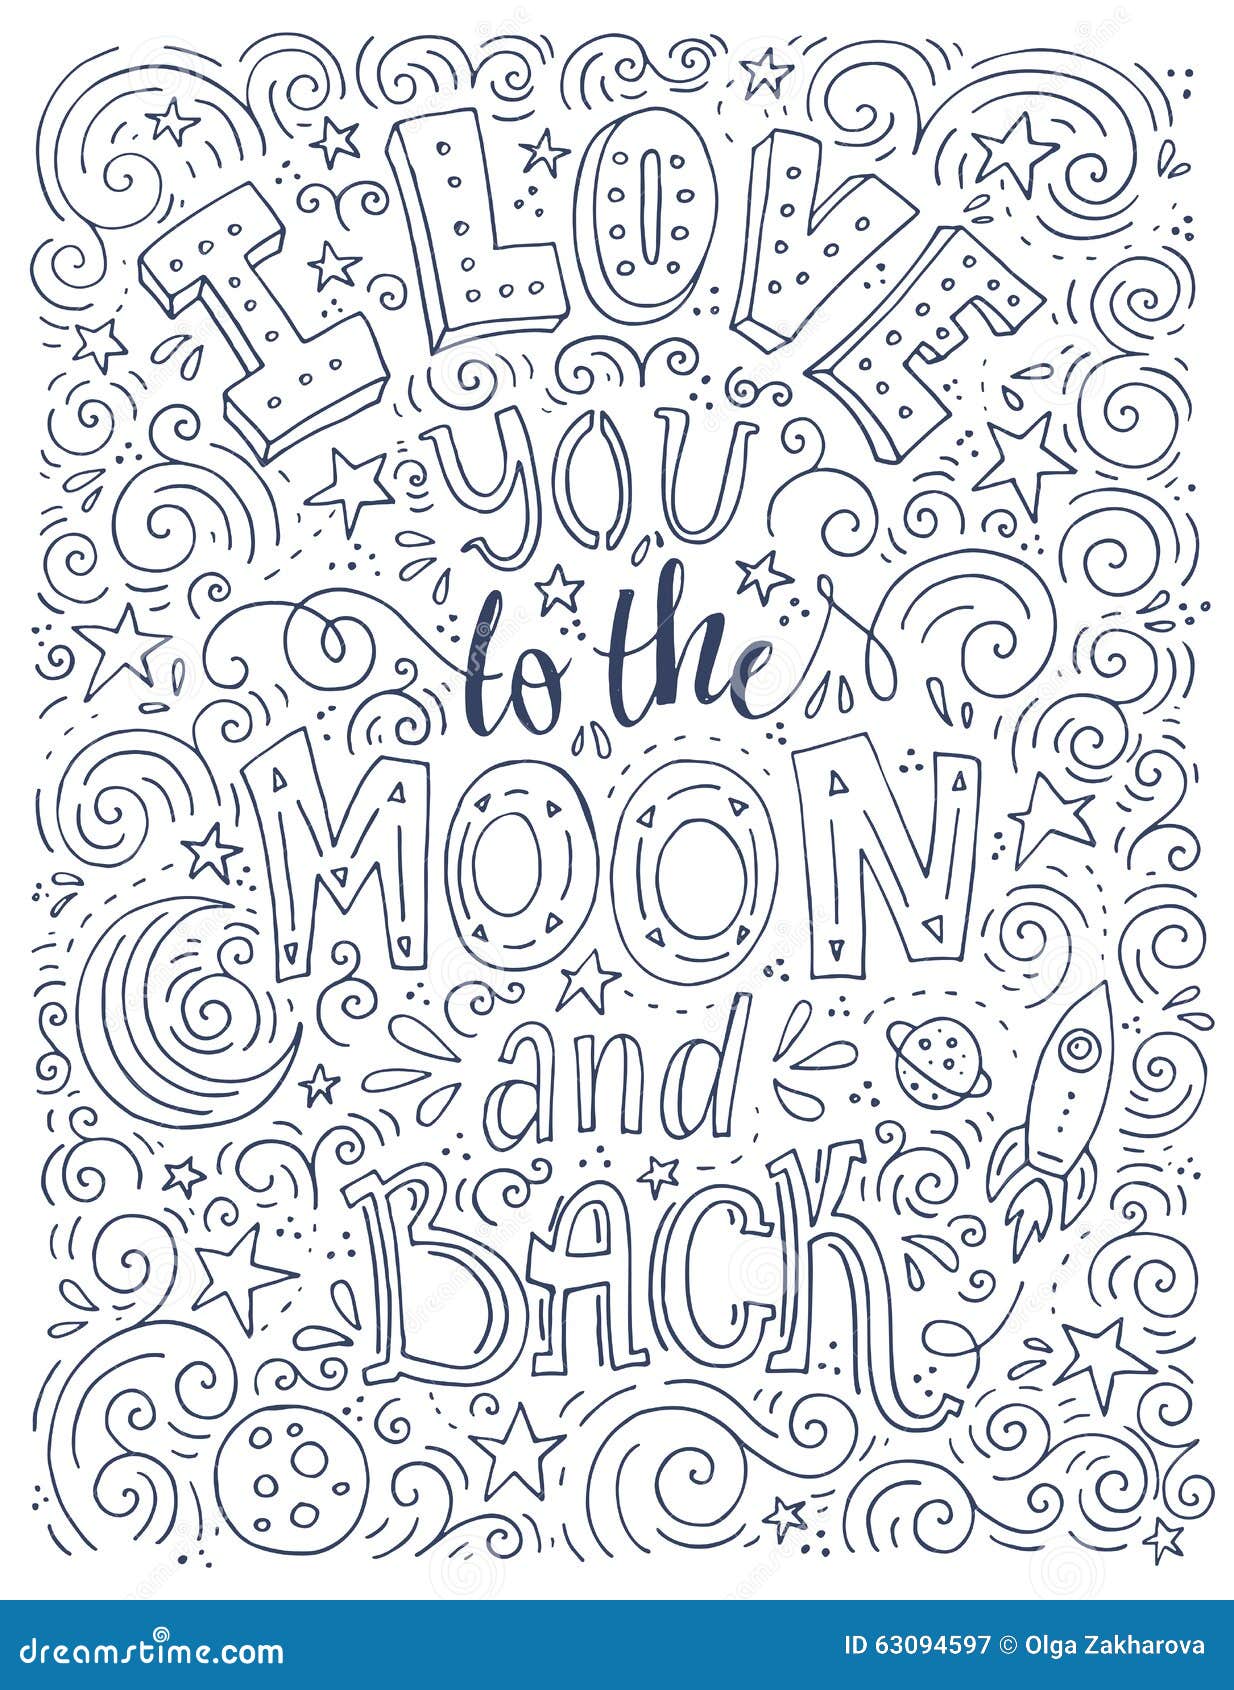 I LOVE
you
to the
MOON
and
BACK
dreamstime.com
ID 63094597 © Olga Zakharova